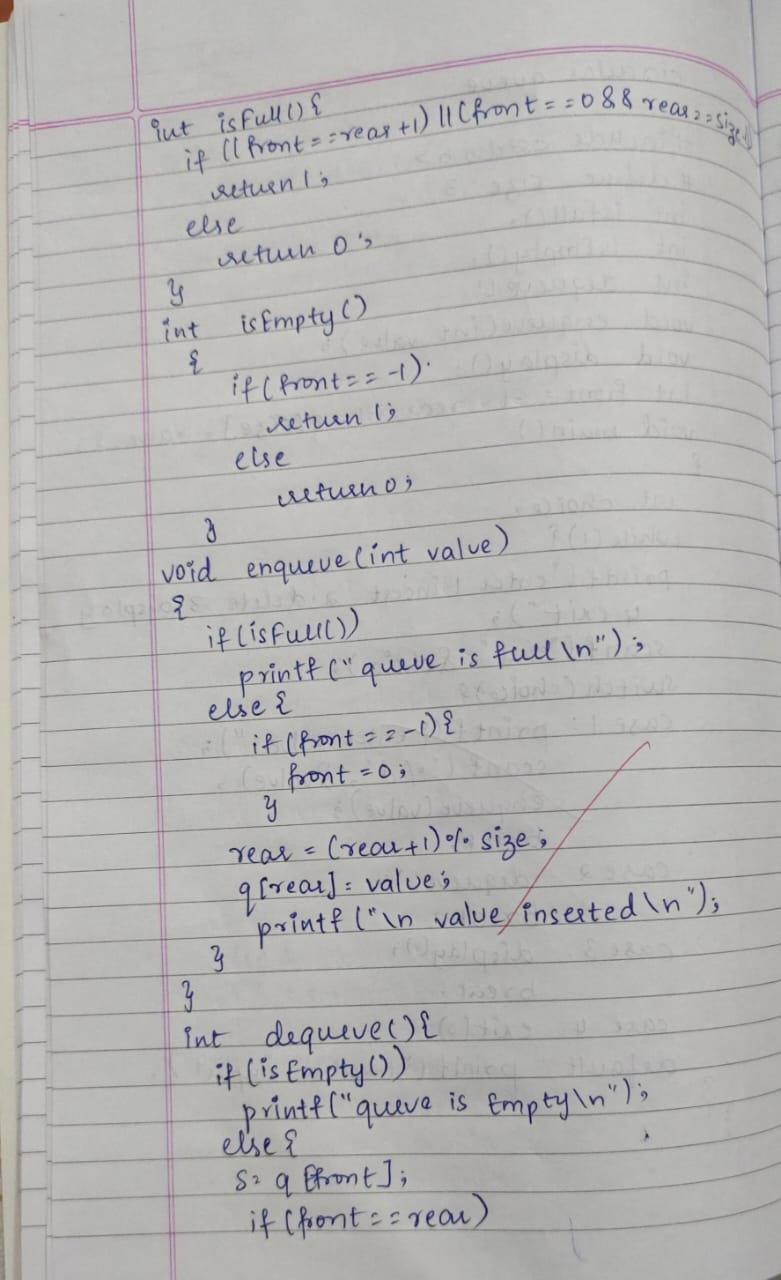 int isFull(){
if ((front==rear+1) || (front==0 && rear==size-1)
return 1;
else
return 0;
}
int isEmpty()
{
if(front==-1).
return 1;
else
return 0;
}
void enqueue(int value)
{
if(isFull())
printf("queue is full\n");
else {
if(front==-1){
front=0;
}
rear=(rear+1)% size;
q[rear]=value;
printf("\n value inserted\n");
}
}
int dequeue(){
if(isEmpty())
printf("queue is Empty\n");
else {
s= q[front];
if(front==rear)